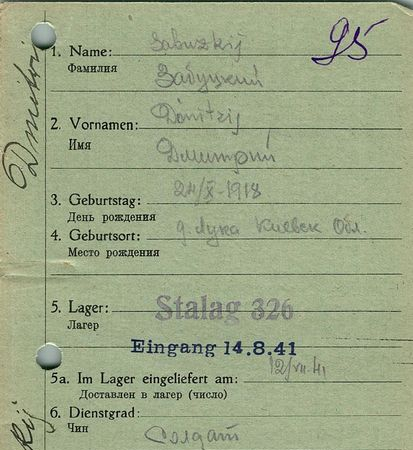 95
1. Name: Sabuzkij
Фамилия Забуцкий
2. Vornamen: Dmitrij
Имя Дмитрий
3. Geburtstag: 24/X-1918
День рождения
4. Geburtsort: д. Лука Киевск Обл.
Место рождения
5. Lager: Stalag 326
Лагерь
Eingang 14.8.41
5a. Im Lager eingeliefert am: 12/VII.41
Доставлен в лагерь (число)
6. Dienstgrad:
Чин Солдат